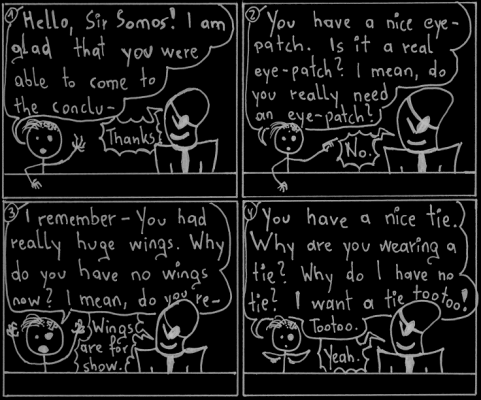 1 Hello, Sir Somos! I am
glad that you were
able to come to
the conclu-
Thanks.
2 You have a nice eye-
patch. Is it a real
eye-patch? I mean, do
you really need
an eye-patch?
No.
3 I remember – You had
really huge wings. Why
do you have no wings
now? I mean, do you re-
Wings
are for
show.
4 You have a nice tie.
Why are you wearing a
tie? Why do I have no
tie? I want a tie tootoo!
Tootoo.
Yeah.